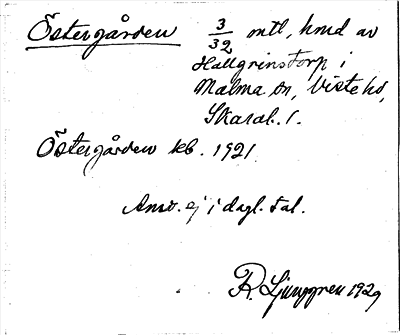 Östergården 3/32 mtl, hmd av
Hallgrinstorp i
Malma sn, Viste hd,
Skarab. l.
Östergården kb. 1921
Anv. ej i dagl. tal.
R. Ljunggren 1929